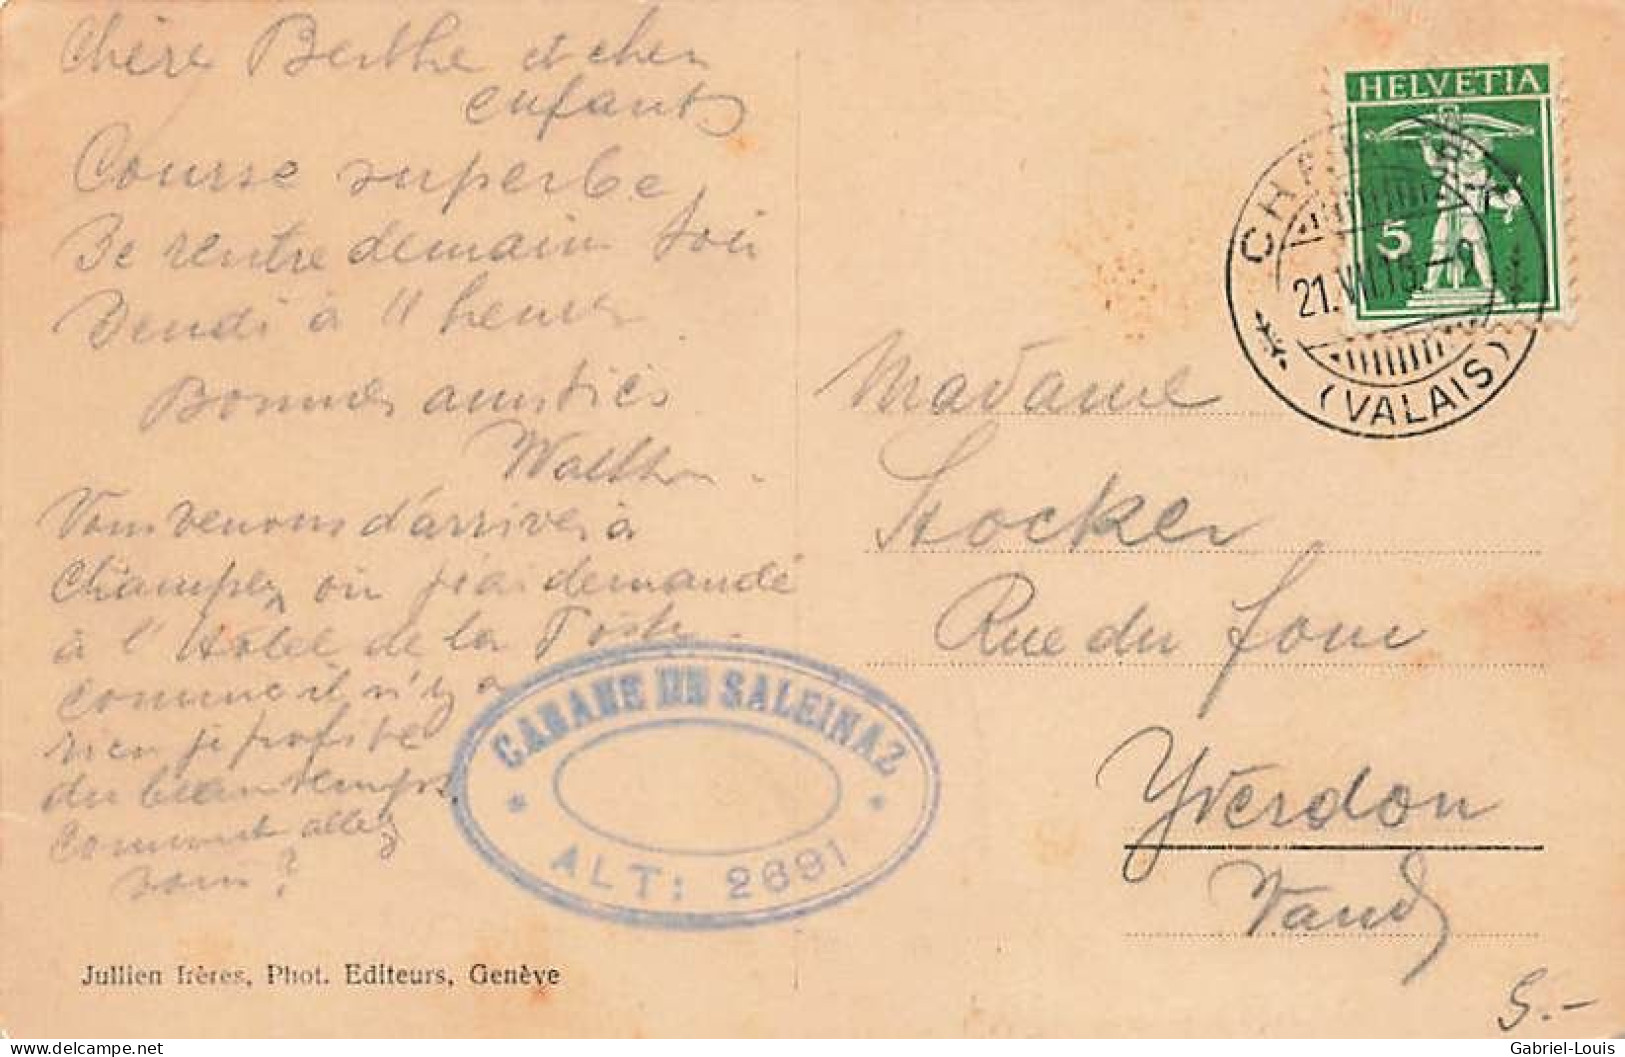 Chère Berthe et chers
enfants
Course superbe
Je rentre demain soir
Vendi à 11 heures
Bonnes amitiés
Walther.
Nous venons d'arriver à
Champex où j'ai demandé
à l'Hôtel de la Poste
comme il n'y a
rien je profite
du beau temps.
Comment allez
vous?
CABANE DE SALEINAZ
ALT: 2691
Jullien frères, Phot. Editeurs, Genève
HELVETIA
5
CHAMPEX
21.VII.15.-9
(VALAIS)
Madame
Stocker
Rue du four
Yverdon
Vaud
5.-
https://www.delcampe.net
Gabriel-Louis